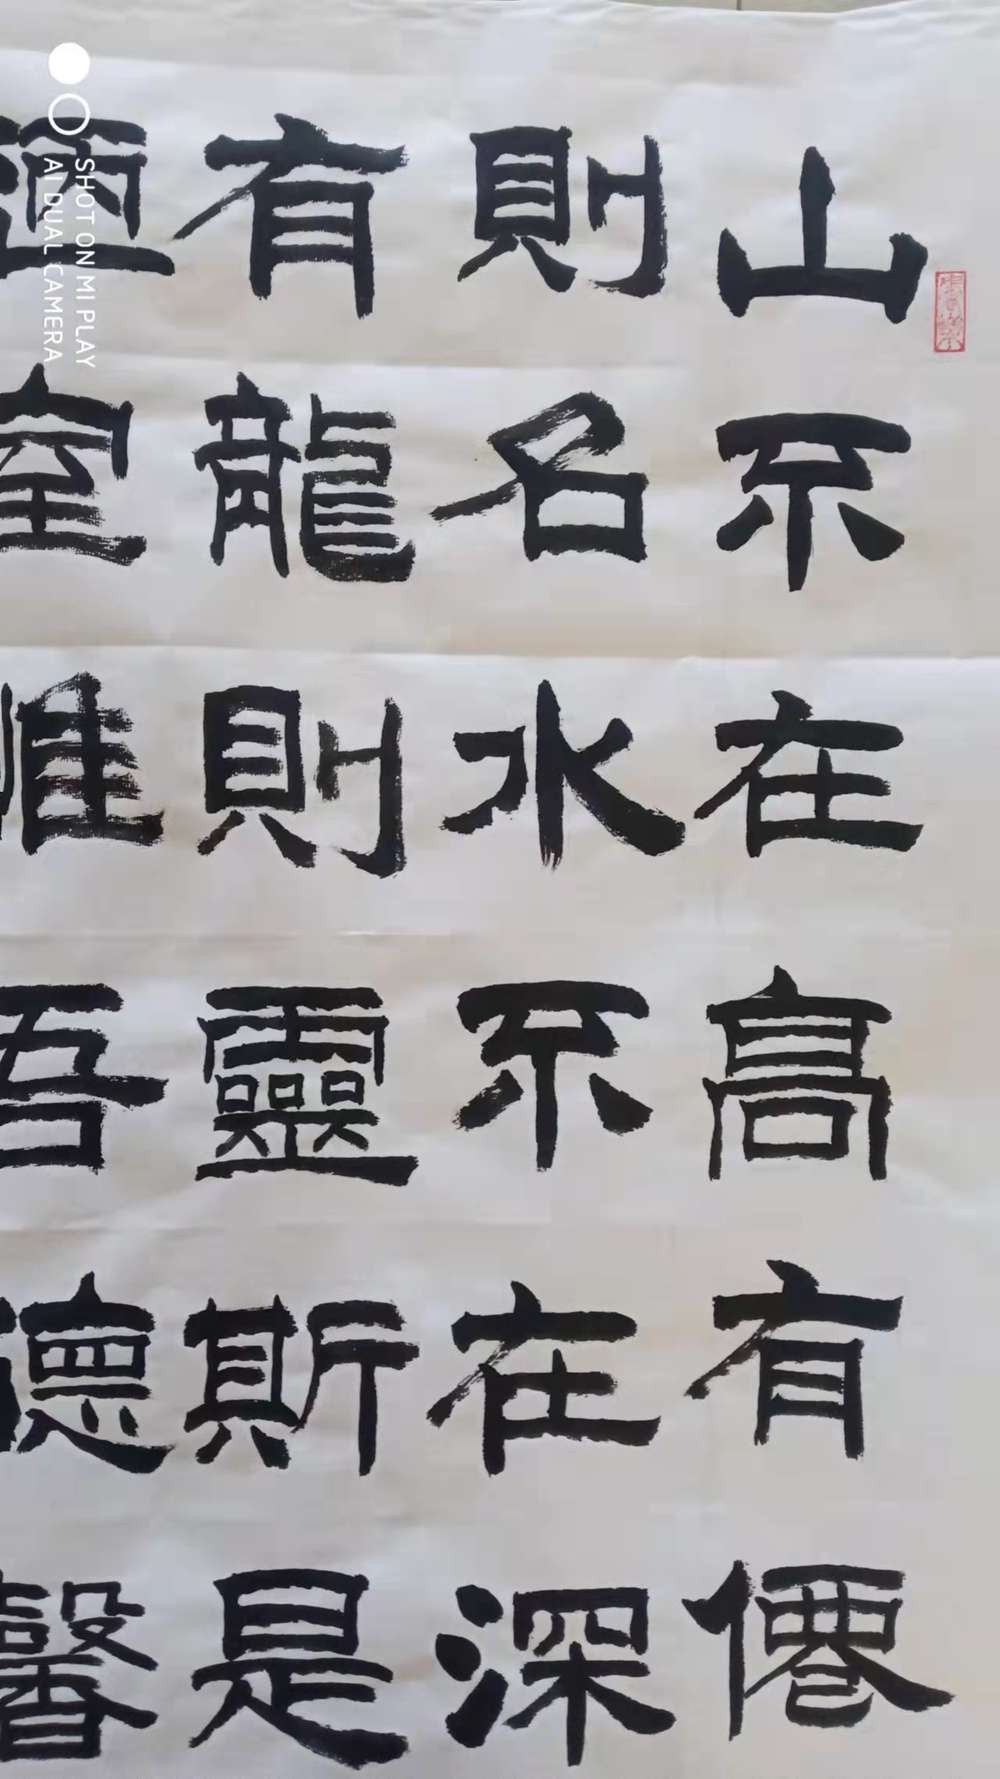 山不在高有僊
則名水不在深
有龍則靈斯是
陋室惟吾德馨
SHOT ON MI PLAY
AI DUAL CAMERA